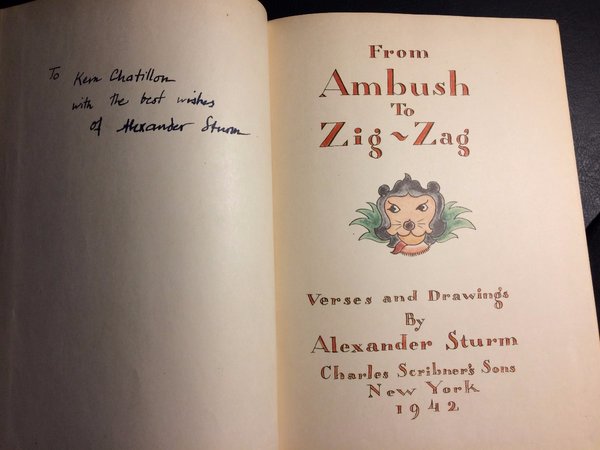 To Kern Chatillon
with the best wishes
of Alexander Sturm
From
Ambush
To
Zig~Zag
Verses and Drawings
By
Alexander Sturm
Charles Scribner's Sons
New York
1942